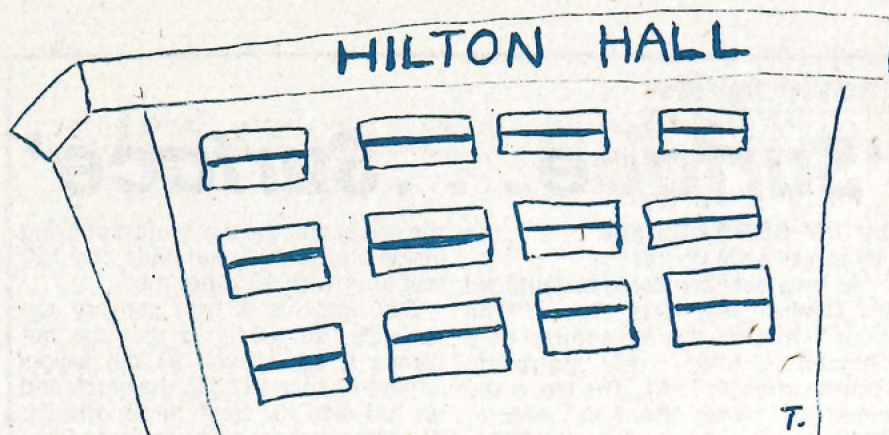 HILTON HALL
T.